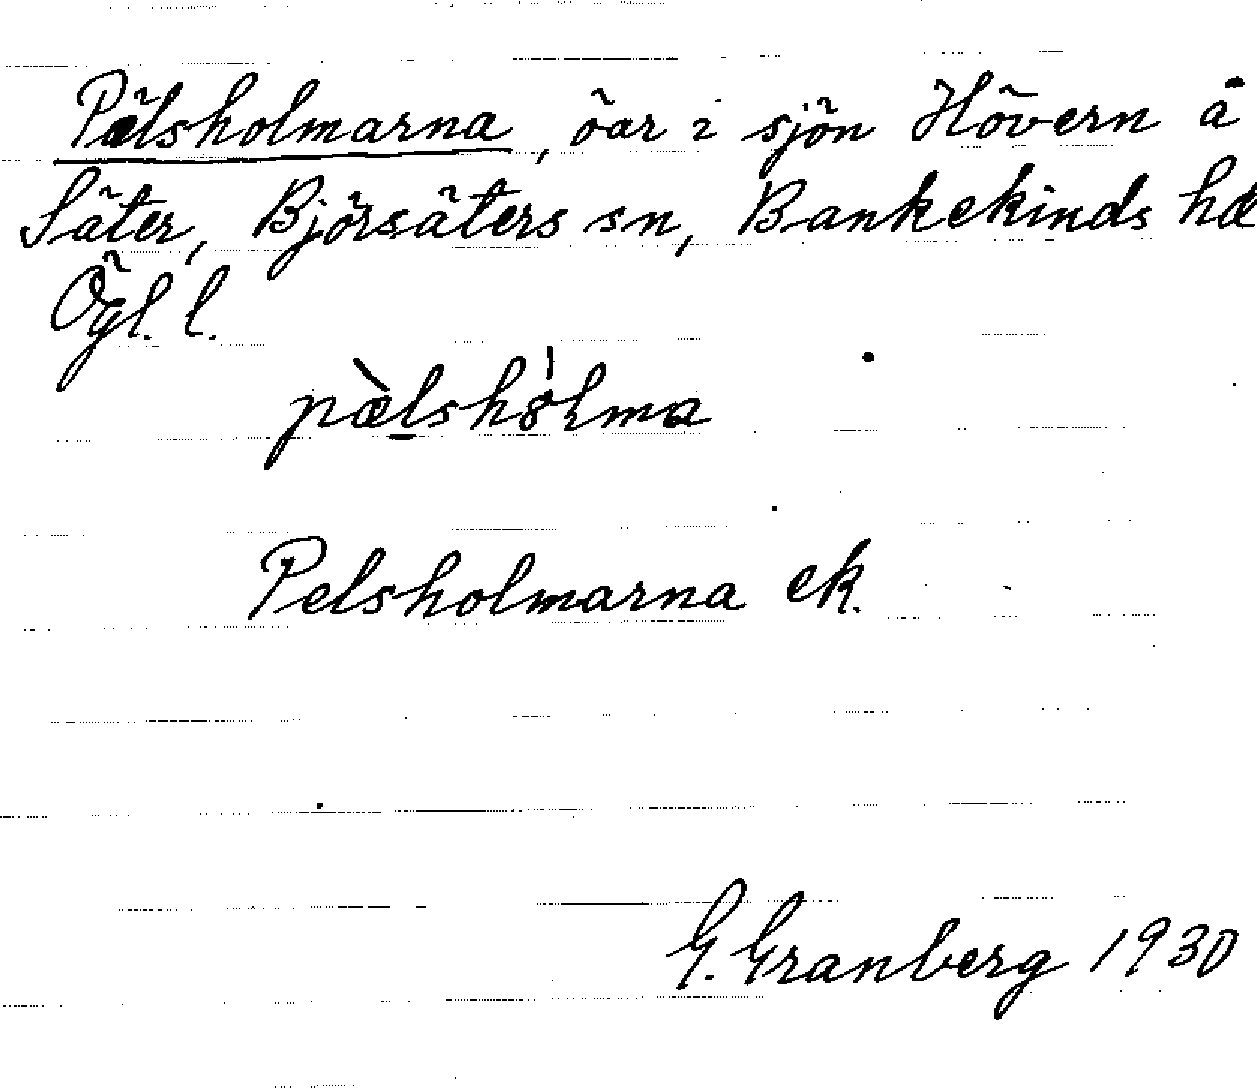 Pälsholmarna, öar i sjön Hövern å
Säter, Björsäters sn, Bankekinds hd
Ögl. l.
pæ̀lshólma
Pelsholmarna ek.
G. Granberg 1930